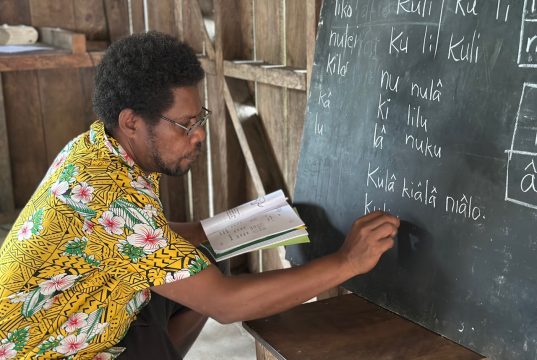 liko
nulei
Kilo
kâ
lu
Kuli Ku li
Ku lil Kuli
nu nulâ
ki lilu
lâ nuku
Kulâ kiâlâ niâlo.
â